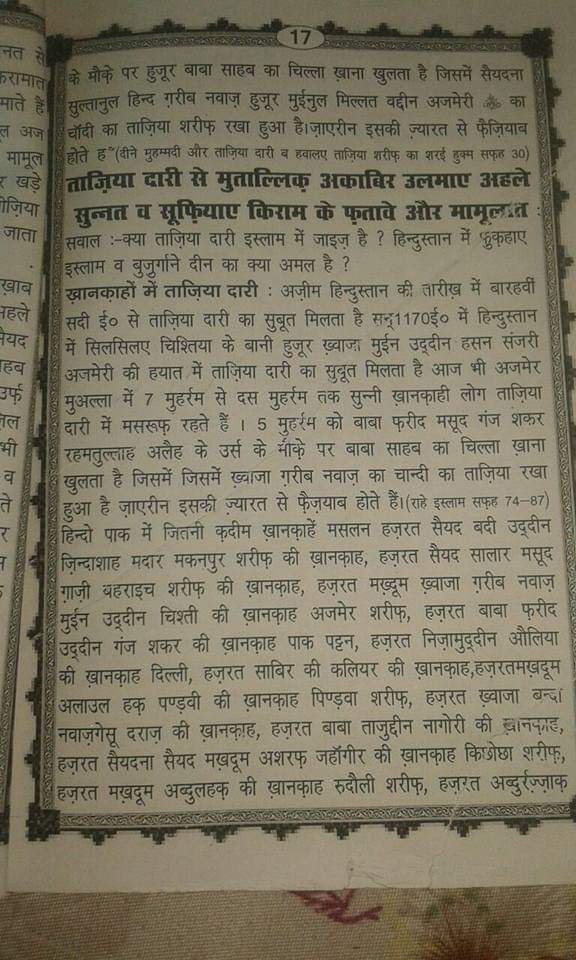 17
के मौके़ पर हुजू़र बाबा साहब का चिल्ला ख़ाना खुलता है जिसमें सैयदना
सुल्तानुल हिन्द ग़रीब नवाज़ हुजू़र मुईनुल मिल्लत वद्दीन अजमेरी का
चॉंदी का ताज़िया शरीफ़ रखा हुआ है।ज़ाएरीन इसकी ज़्यारत से फै़ज़ियाब
होते ह (दीने मुहम्मदी और ताज़िया दारी ब हवालए ताज़िया शरीफ़ का शरई हुक्म सफ़्ह 30)
ताज़िया दारी से मुताल्लिक़ अकाबिर उलमाए अहले
सुन्नत व सूफ़ियाए किराम के फ़तावे और मामूलात :
सवाल :–क्या ताज़िया दारी इस्लाम में जाइज़ है ? हिन्दुस्तान में फु़क़हाए
इस्लाम व बुजुर्गाने दीन का क्या अमल है ?
ख़ानक़ाहों में ताज़िया दारी : अज़ीम हिन्दुस्तान की तारीख़ में बारहवीं
सदी ई० से ताज़िया दारी का सुबूत मिलता है सन्1170ई० में हिन्दुस्तान
में सिलसिलए चिश्तिया के बानी हुजू़र ख़्वाजा मुईन उद्दीन हसन संजरी
अजमेरी की हयात में ताज़िया दारी का सुबूत मिलता है आज भी अजमेर
मुअल्ला में 7 मुहर्रम से दस मुहर्रम तक सुन्नी ख़ानक़ाही लोग ताज़िया
दारी में मसरूफ़ रहते हैं । 5 मुहर्रम को बाबा फ़रीद मसूद गंज शकर
रहमतुल्लाह अलैह के उर्स के मौके़ पर बाबा साहब का चिल्ला ख़ाना
खुलता है जिसमें जिसमें ख़्वाजा ग़रीब नवाज़ का चान्दी का ताज़िया रखा
हुआ है ज़ाएरीन इसकी ज़्यारत से फै़ज़याब होते हैं।(राहे इस्लाम सफ़्ह 74–87)
हिन्दो पाक में जितनी क़दीम ख़ानक़ाहें मसलन हज़रत सैयद बदी उद्दीन
ज़िन्दाशाह मदार मकनपुर शरीफ़ की ख़ानक़ाह, हज़रत सैयद सालार मसूद
ग़ाज़ी बहराइच शरीफ़ की ख़ानक़ाह, हज़रत मख़्दूम ख़्वाजा ग़रीब नवाज़
मुईन उद्दीन चिश्ती की ख़ानक़ाह अजमेर शरीफ़, हज़रत बाबा फ़रीद
उद्दीन गंज शकर की ख़ानक़ाह पाक पट्टन, हज़रत निज़ामुद्दीन औलिया
की ख़ानक़ाह दिल्ली, हज़रत साबिर की कलियर की ख़ानक़ाह,हज़रतमख़दूम
अलाउल हक़ पण्डवी की ख़ानक़ाह पिण्डवा शरीफ़, हज़रत ख़्वाजा बन्दा
नवाज़गेसू दराज़ की ख़ानक़ाह, हज़रत बाबा ताजुद्दीन नागोरी की ख़ानक़ाह,
हज़रत सैयदना सैयद मख़दूम अशरफ़ जहॉंगीर की ख़ानक़ाह किछोछा शरीफ़,
हज़रत मख़दूम अब्दुलहक़ की ख़ानक़ाह रुदौली शरीफ़, हज़रत अब्दुर्रज़्ज़ाक़
नत से
करामात
माते हैं
अज
मामूल
खड़े
जाता
ख़ाब
अहले
सैयद
उर्फ़
भी
व
ते